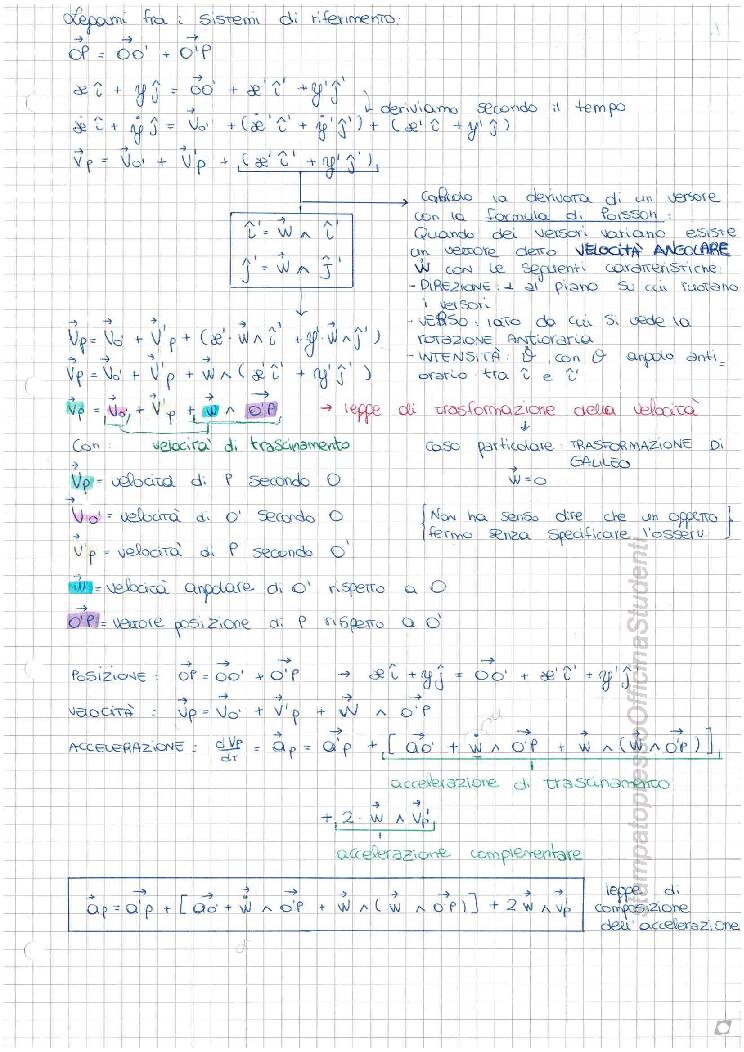 Legami fra i sistemi di riferimento:
OP⃗ = OO'⃗ + O'P⃗
x î + y ĵ = OO'⃗ + x' î' + y' ĵ'
↳ deriviamo secondo il tempo
ẋ î + ẏ ĵ = V⃗o' + (ẋ' î' + ẏ' ĵ') + (x' î + y' ĵ)
V⃗p = V⃗o' + V⃗'p + (x' î' + y' ĵ')
Calcolo la derivata di un versore
con la formula di Poisson:
Quando dei versori variano esiste
un vettore detto VELOCITÀ ANGOLARE
w⃗ con le seguenti caratteristiche:
- DIREZIONE: ⊥ al piano su cui ruotano
i versori
- VERSO: lato da cui si vede la
rotazione antioraria
- INTENSITÀ: θ̇ con θ angolo anti-
orario tra î e î'
î' = w⃗ ∧ î'
ĵ' = w⃗ ∧ ĵ'
V⃗p = V⃗o' + V⃗'p + (x' · w⃗ ∧ î' + y' · w⃗ ∧ ĵ')
V⃗p = V⃗o' + V⃗'p + w⃗ ∧ (x' î' + y' ĵ')
V⃗p = V⃗o' + V⃗'p + w⃗ ∧ O'P⃗ → legge di trasformazione della velocità
Con: velocità di trascinamento
caso particolare: TRASFORMAZIONE DI
GALILEO
w⃗ = 0
V⃗p = velocità di P secondo O
V⃗o' = velocità di O' secondo O
{Non ha senso dire che un oggetto è}
{fermo senza specificare l'osserv}
V⃗'p = velocità di P secondo O'
w⃗ = velocità angolare di O' rispetto a O
O'P⃗ = vettore posizione di P rispetto a O'
POSIZIONE: OP⃗ = OO'⃗ + O'P⃗ → x î + y ĵ = OO'⃗ + x' î' + y' ĵ'
VELOCITÀ: v⃗p = V⃗o' + V⃗'p + w⃗ ∧ O'P⃗
ACCELERAZIONE: dVp/dt = a⃗p = a⃗'p + [a⃗o' + ẇ⃗ ∧ O'P⃗ + w⃗ ∧ (w⃗ ∧ O'P⃗)]
accelerazione di trascinamento
+ 2 · w⃗ ∧ V⃗p'
accelerazione complementare
a⃗p = a⃗'p + [a⃗o' + ẇ⃗ ∧ O'P⃗ + w⃗ ∧ (w⃗ ∧ O'P⃗)] + 2 w⃗ ∧ v⃗p
legge di
composizione
dell'accelerazione
StampatopressoOfficinaStudenti